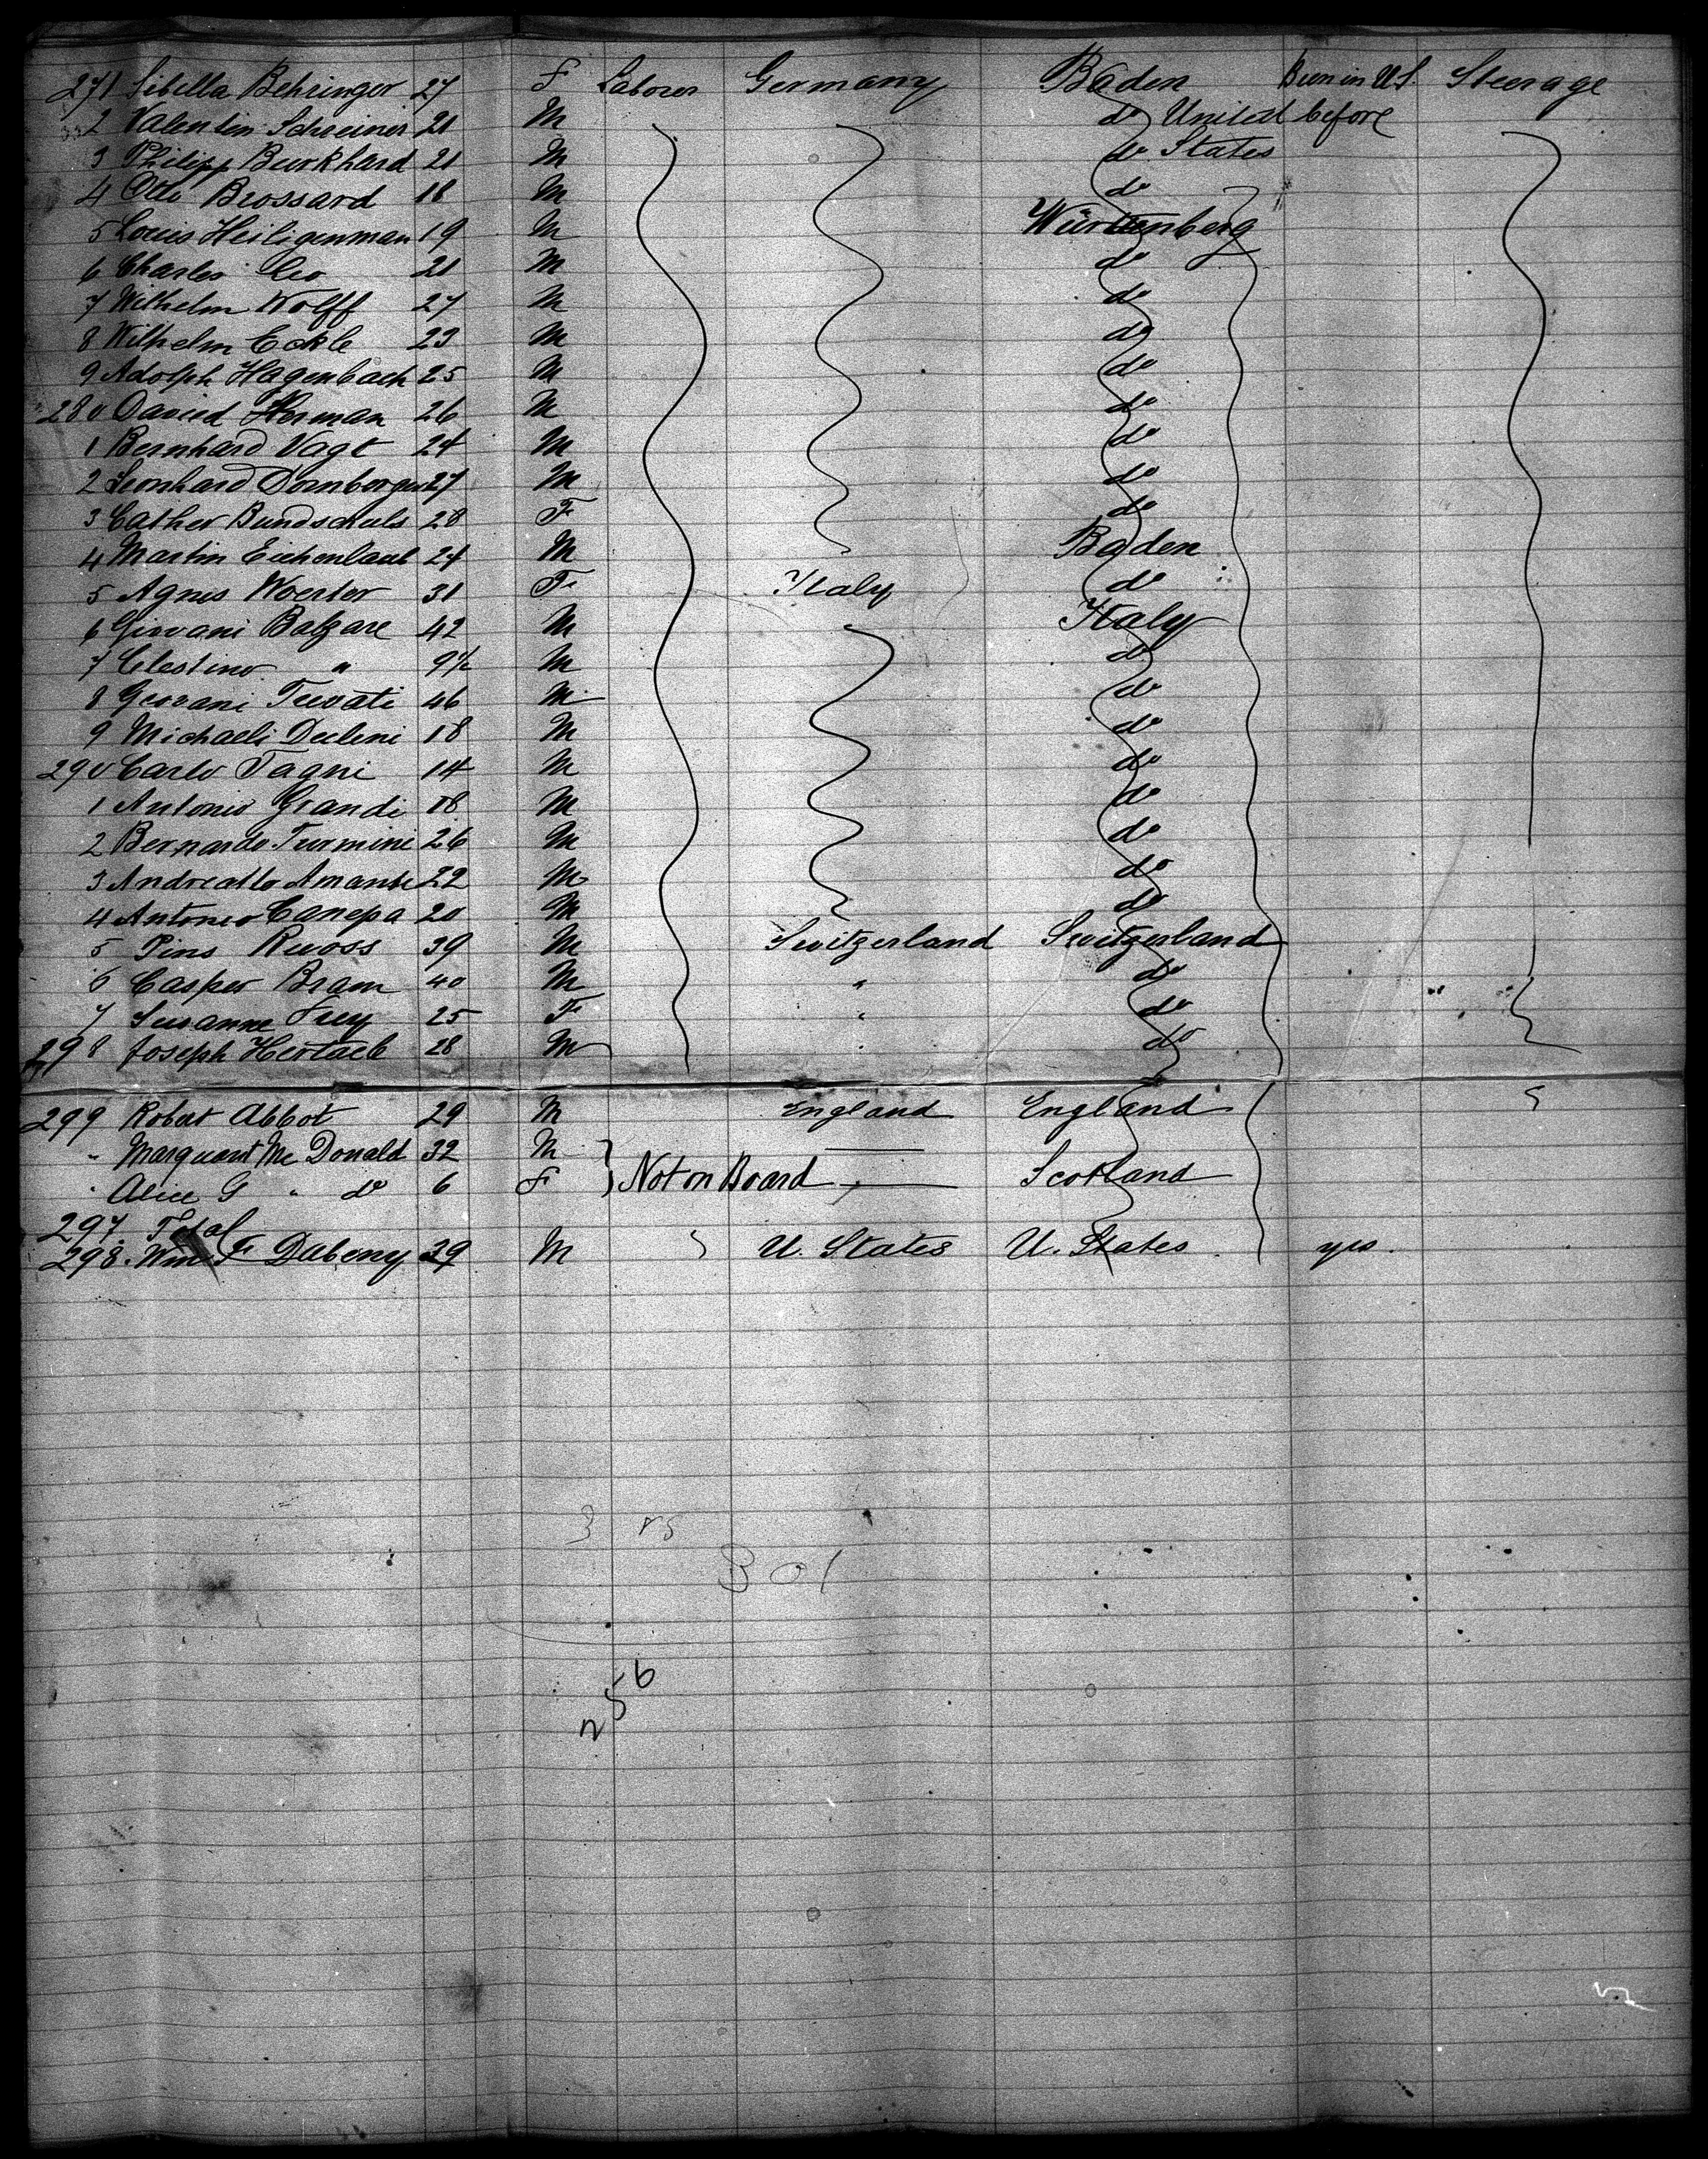 271 Sibella Behringer 27 F Laborer Germany Baden Been in U.S. Steerage
2 Valentin Schreiner 21 M do United before
3 Philipp Burkhard 21 M do States
4 Otto Brossard 18 M do
5 Louis Heiligenman 19 M Würtenberg
6 Charles Leo 21 M do
7 Wilhelm Wolff 27 M do
8 Wilhelm Eckle 23 M do
9 Adolph Hagenbach 25 M do
280 David Herman 26 M do
1 Bernhard Vagt 24 M do
2 Leonhard Dornberger 27 M do
3 Cather Bundschuls 28 F do
4 Martin Eichenlaub 24 M Baden
5 Agnes Woerter 31 F Italy do
6 Giovani Balzare 42 M Italy
7 Celestino " 9½ M do
8 Geovani Trevati 46 M do
9 Michaeli Deeleni 18 M do
290 Carlo Tagni 14 M do
1 Antonio Grandi 18 M do
2 Bernardo Turmini 26 M do
3 Andreatto Amante 22 M do
4 Antonio Canepa 20 M do
5 Pins Ruoss 39 M Switzerland Switzerland
6 Casper Bram 40 M " do
7 Susanne Frey 25 F " do
298 Joseph Hertach 28 M " do
299 Robert Abbot 29 M England England
" Marquart Mc Donald 32 M
" Alice G " do 6 F } Not on Board Scotland
297. Total
298. Wm F Dabeny 39 M U. States U. States yes.
3 rs
301
256